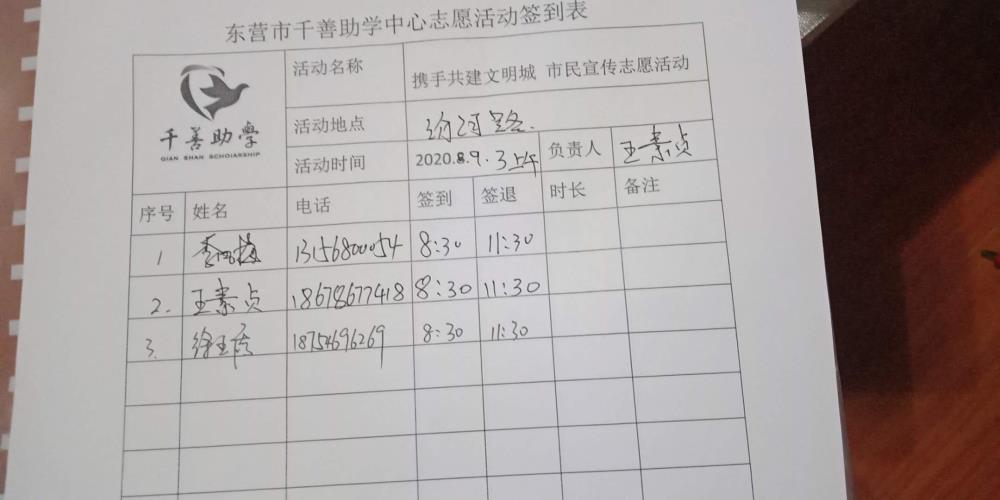 东营市千善助学中心志愿活动签到表
千善助學
QIAN SHAN SCHOLARSHIP
活动名称 携手共建文明城 市民宣传志愿活动
活动地点 路.
活动时间 2020.8.9.3上午 负责人 王素贞
序号 姓名 电话 签到 签退 时长 备注
1 李 13156800054 8:30 11:30
2. 王素贞 18678677418 8:30 11:30
3. 徐玉 18754696269 8:30 11:30